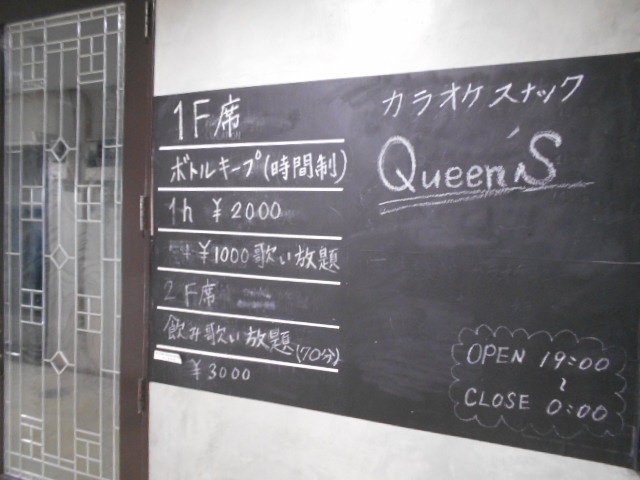 1F席
ボトルキープ(時間制)
1h ¥2000
¥1000歌い放題
2F席
飲み歌い放題(70分)
¥3000
カラオケスナック
Queen'S
OPEN 19:00
~
CLOSE 0:00